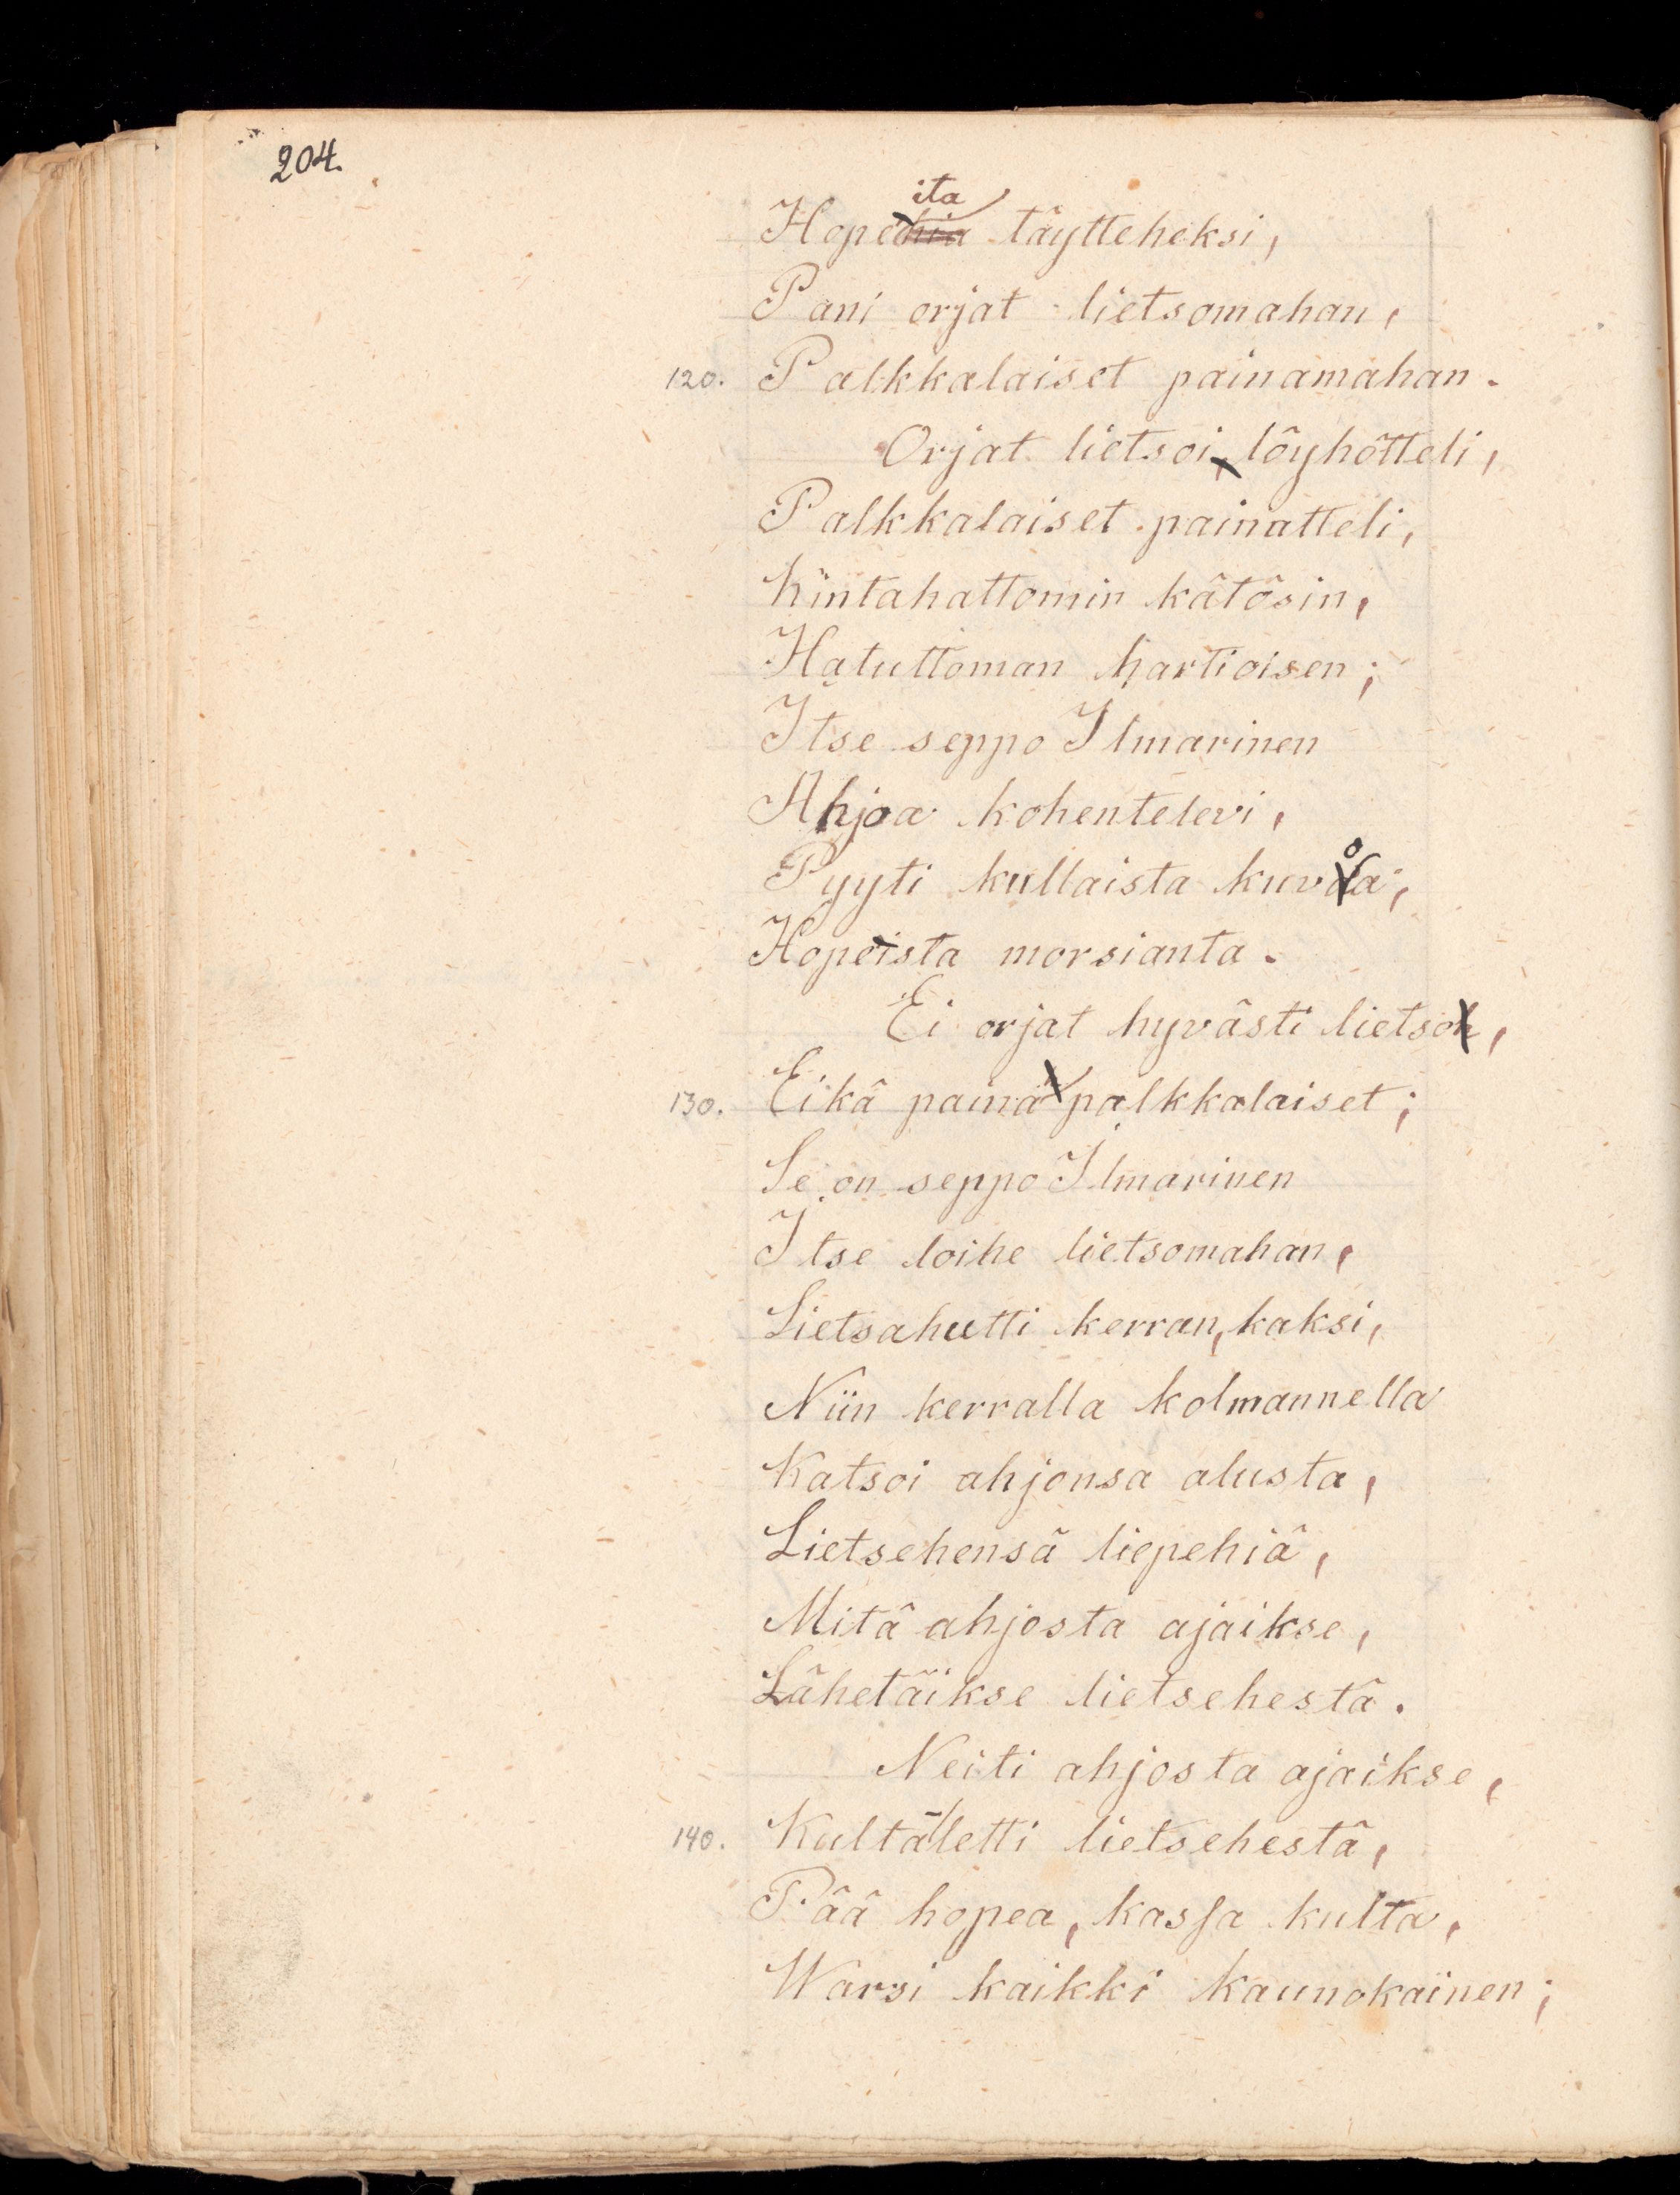 204.
Hopeita täytteheksi,
Pani orjat lietsomahan,
120. Palkkalaiset painamahan.
Orjat lietsoi löyhötteli,
Palkkalaiset painatteli,
Kintahattomin kätösin,
Hatuttoman hartioisen;
Itse seppo Ilmarinen
Ahjoa kohentelevi,
Pyyti kullaista kuvoa,
Hopeista morsianta.
Ei orjat hyvästi lietso,
130. Eikä paina palkkalaiset;
Se on seppo Ilmarinen
Itse loihe lietsomahan,
Lietsahutti kerran, kaksi,
Niin kerralla kolmannella
Katsoi ahjonsa alusta,
Lietsehensä liepehiä,
Mitä ahjosta ajaikse,
Lähetäikse lietsehestä.
Neiti ahjosta ajaikse,
140. Kulta-letti lietsehestä,
Pää hopea, kassa kulta,
Warsi kaikki kaunokainen;